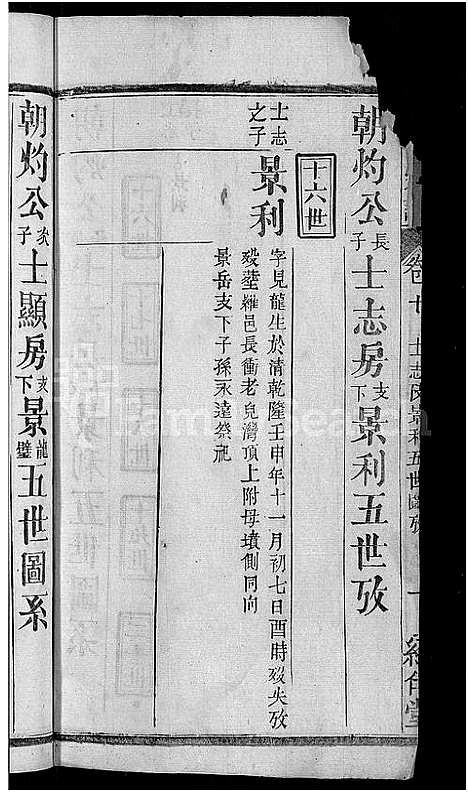 朝灼公長子士志房支下景利五世攷
十六世
士志之子
景利
字見龍生於清乾隆壬申年十一月初七日酉時歿失攷
歿塟羅邑長衝老皃灣頂上附母墳側同向
景岳支下子孫永遠祭祀
朝灼公次子士顯房支下景龍璧五世圖系
士志房景利五世圖攷